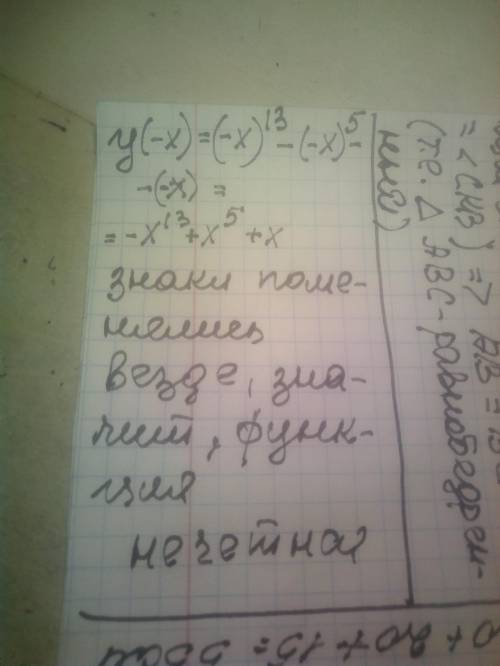 y(-x) = (-x)^13 - (-x)^5 -
-(-x) =
= -x^13 + x^5 + x
знаки поме-
нялись
везде, зна-
чит, функ-
ция
нечетная
= <CMB) => AB = 15
(т.е. Δ ABC - равнобедрен-
ный)